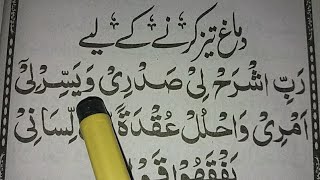 دماغ تیز کرنے کے لیے
رَبِّ اشْرَحْ لِیْ صَدْرِیْ وَیَسِّرْ لِیْٓ
اَمْرِیْ وَاحْلُلْ عُقْدَةً لِّسَانِیْ
یَفْقَهُوْا